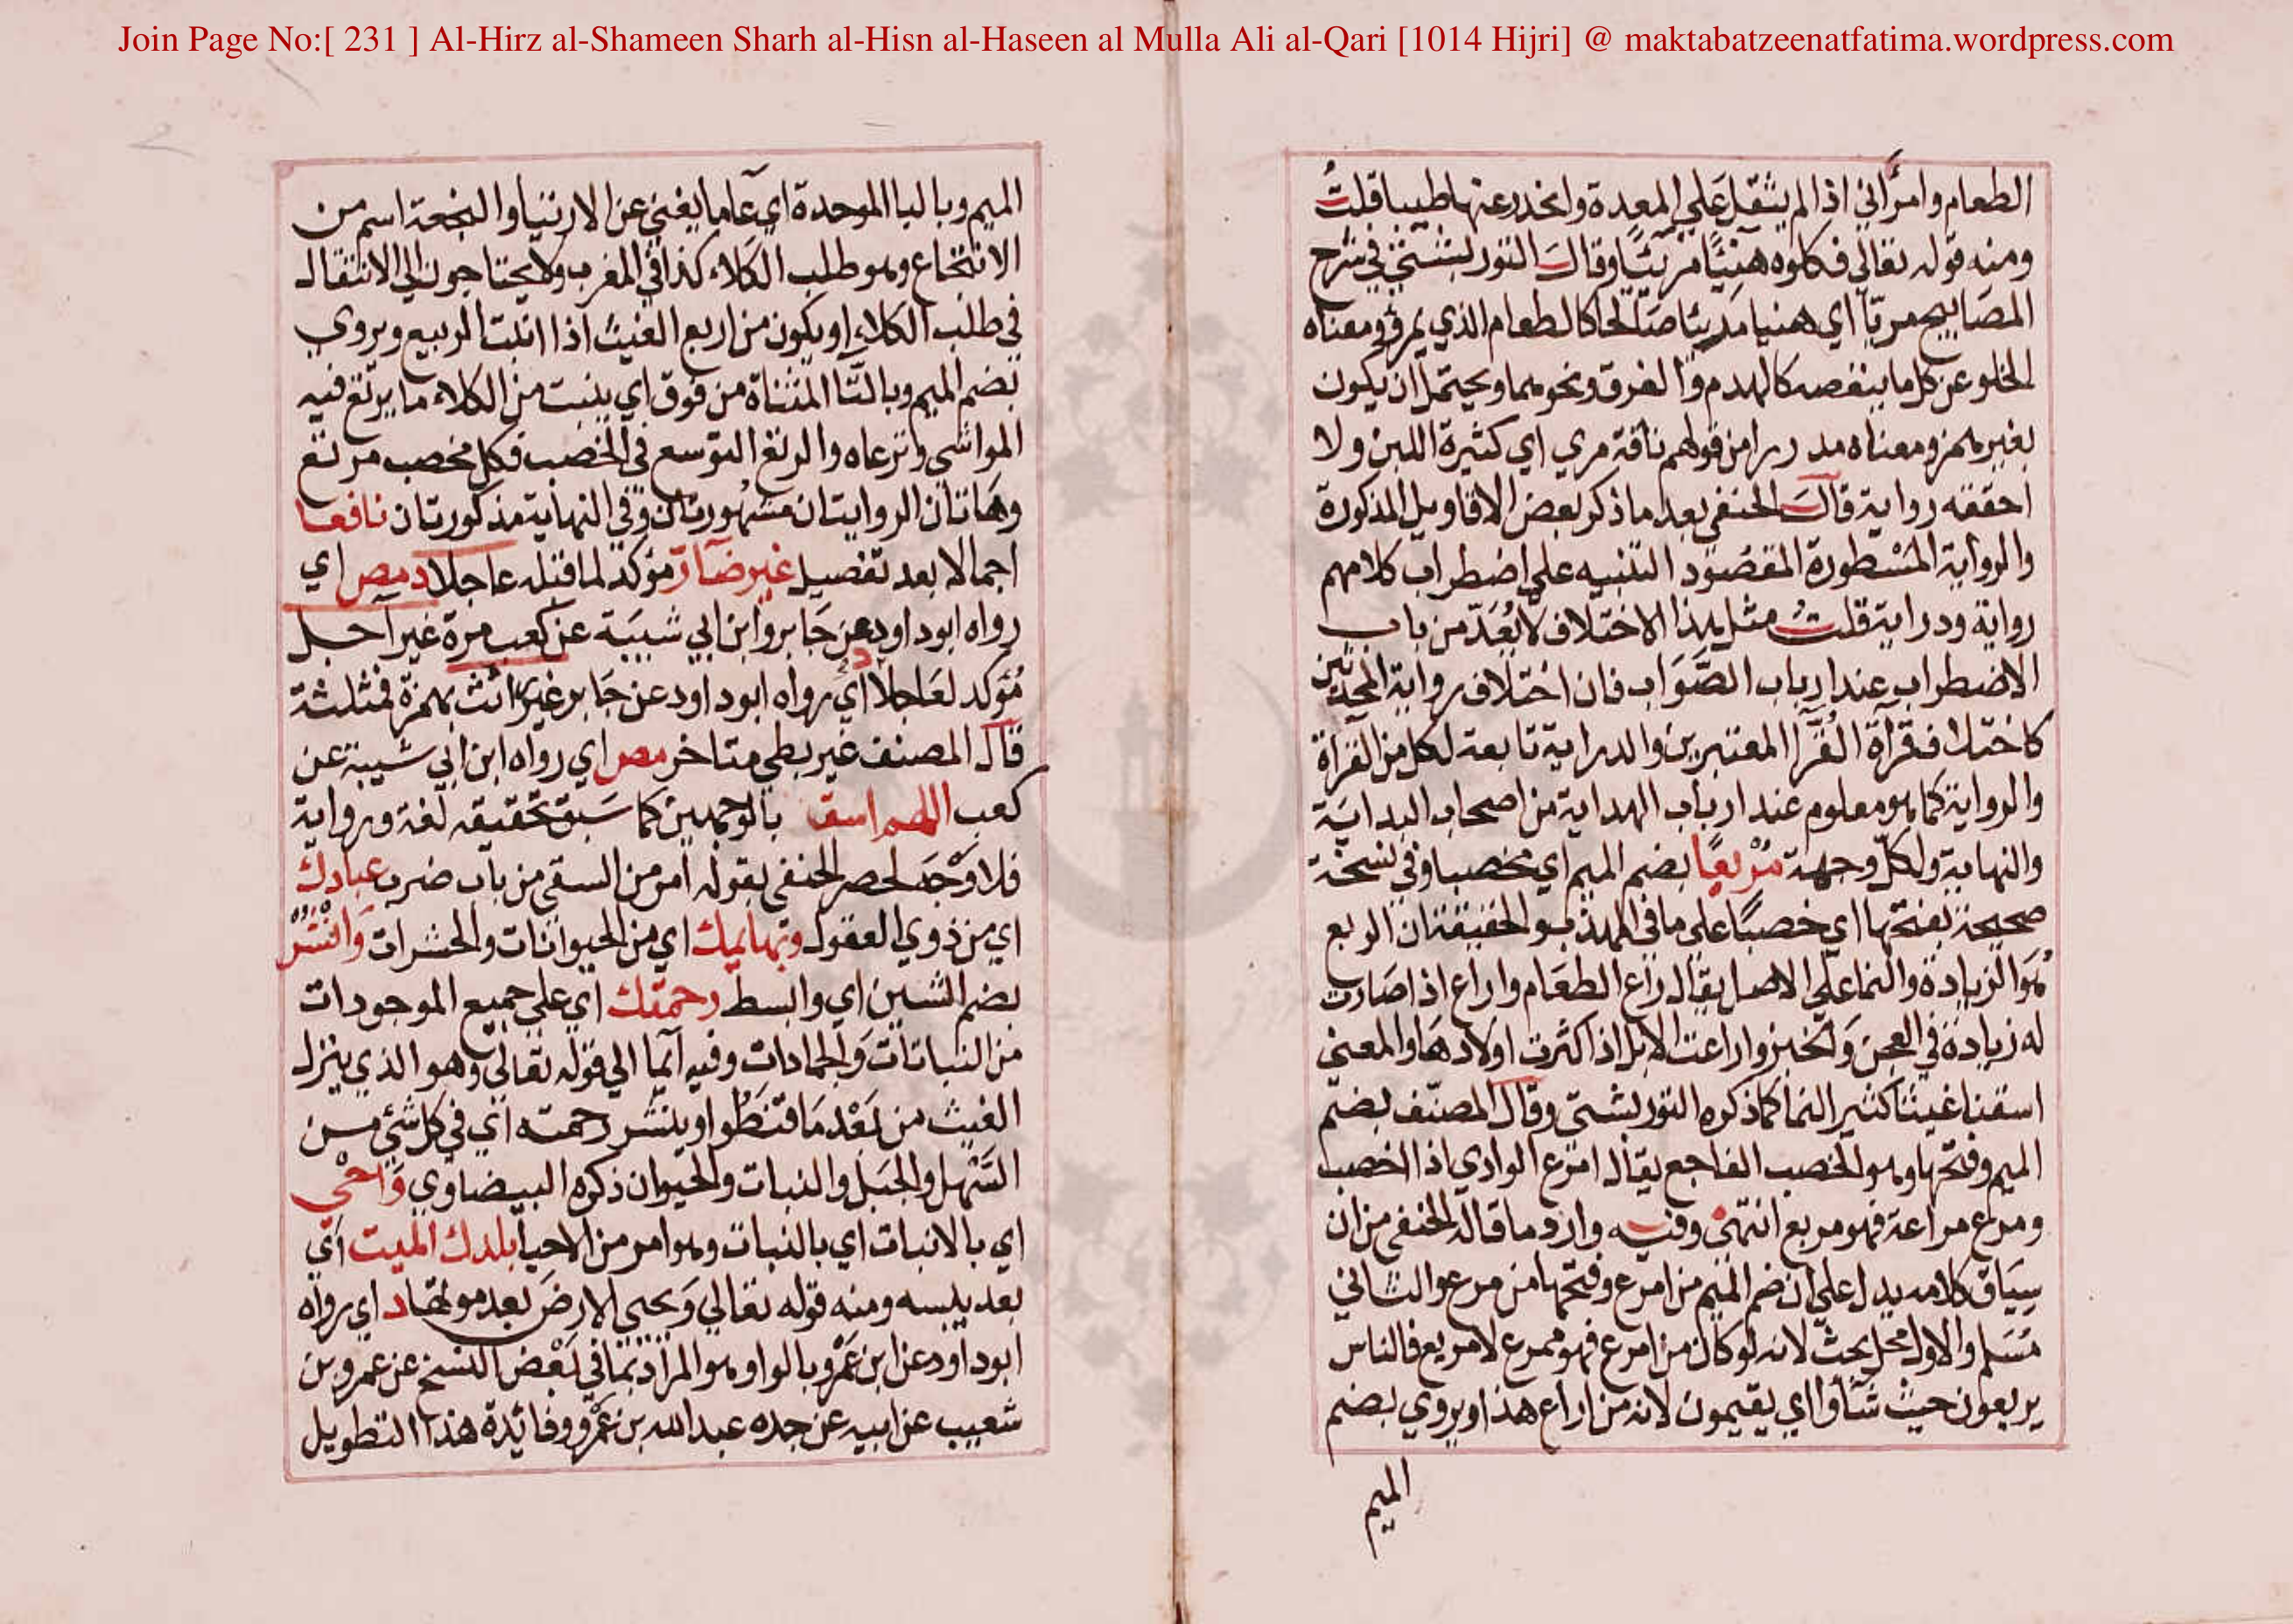 Join Page No:[ 231 ] Al-Hirz al-Shameen Sharh al-Hisn al-Haseen al Mulla Ali al-Qari [1014 Hijri] @ maktabatzeenatfatima.wordpress.com
الطعام وامرأني اذا لم يثقل علي المعدة وانحدر عنها طيبا قلت
ومنه قوله تعالي فكلوه هنيئا مريئا وقال التوربشتي في شرح
المصابيح مريا اي هنيا مريئا صالحا كالطعام الذي يمرؤ ومعناه
الخلو عن كل ما ينغصه كالهدم والغرق ونحوهما ويحتمل ان يكون
بغير همز ومعناه مدررا من قولهم ناقة مري اي كثيرة اللبن ولا
احققه رواية قال الحنفي بعد ما ذكر بعض الاقاويل المذكورة
والرواية المسطورة المقصود التنبيه علي اضطراب كلامهم
رواية ودراية قلت مثل هذا الاختلاف لا يعد من باب
الاضطراب عند ارباب الصواب فان اختلاف رواية المحدثين
كاختلاف قرآة القرآ المعتبرين والدراية تابعة لكل من القرآة
والرواية كما هو معلوم عند ارباب الهداية من اصحاب البداية
والنهاية ولكل وجهة مريعا بضم الميم اي مخصبا وفي نسخة
صحيحة بفتحها اي خصبا علي ما في المهذب والحقيقة ان الريع
هو الزيادة والنما علي الاصل يقال راع الطعام واراع اذا صارت
له زيادة في العجن والخبز واراعت الابل اذا كثرت اولادها والمعني
اسقنا غيثا كثير النما كما ذكره التوربشتي وقال المصنف بضم
الميم وفتحها وهو الخصب الناجع يقال امرع الوادي اذا اخصب
ومرع مراعة فهو مريع انتهي وفيه وارد ما قاله الحنفي من ان
سياق كلامه يدل علي ان ضم الميم من امرع وفتحها من مرع والثاني
مسلم والاول محل بحث لانه لو كان من امرع فهو ممرع لا مريع فالناس
يربعون حيث شأوا اي يقيمون لانه من اراع هذا ويروي بضم
الميم
الميم وبالبا الموحدة اي عاما يغني عن الارتياد والنجعة اسم من
الانتجاع وهو طلب الكلاء كذا في المغرب ولا يحتاجون الي الانتقال
في طلب الكلاء او يكون من اربع الغيث اذا انبت الربيع ويروي
بضم الميم وبالتا المثناة من فوق اي ينبت من الكلاء ما يرتع فيه
المواشي وترعاه والرتع التوسع في الخصب فكل مخصب مرتع
وهاتان الروايتان مشهورتان وفي النهاية مذكورتان نافعا
اجمالا بعد تفصيل غير ضآر مؤكد لما قبله عاجلا د مص اي
رواه ابوداود عن جابر وابن ابي شيبة عن كعب مرة غير آجل
مؤكد لعاجلا د اي رواه ابوداود عن جابر غير رائث بهمزة فمثلثة
قال المصنف غير بطي متاخر مص اي رواه ابن ابي شيبة عن
كعب اللهم اسق بالوجهين كما سبق تحقيقه لغة ورواية
فلا وجه لحصر الحنفي بقوله امر من السقي من باب ضرب عبادك
اي من ذوي العقول وبهايمك اي من الحيوانات والحشرات وانشر
بضم الشين اي وابسط رحمتك اي علي جميع الموجودات
من النباتات والجمادات وفيه آيما الي قوله تعالي وهو الذي ينزل
الغيث من بعد ما قنطوا وينشر رحمته اي في كل شئ من
السهل والجبل والنبات والحيوان ذكره البيضاوي واحي
اي بالانبات اي بالنبات وهو امر من الاحيا بلدك الميت اي
بعد يبسه ومنه قوله تعالي ويحيي الارض بعد موتها د اي رواه
ابوداود عن ابن عمرو بالواو وهو المراد بما في بعض النسخ عن عمرو بن
شعيب عن ابيه عن جده عبدالله بن عمرو وفائدة هذا التطويل